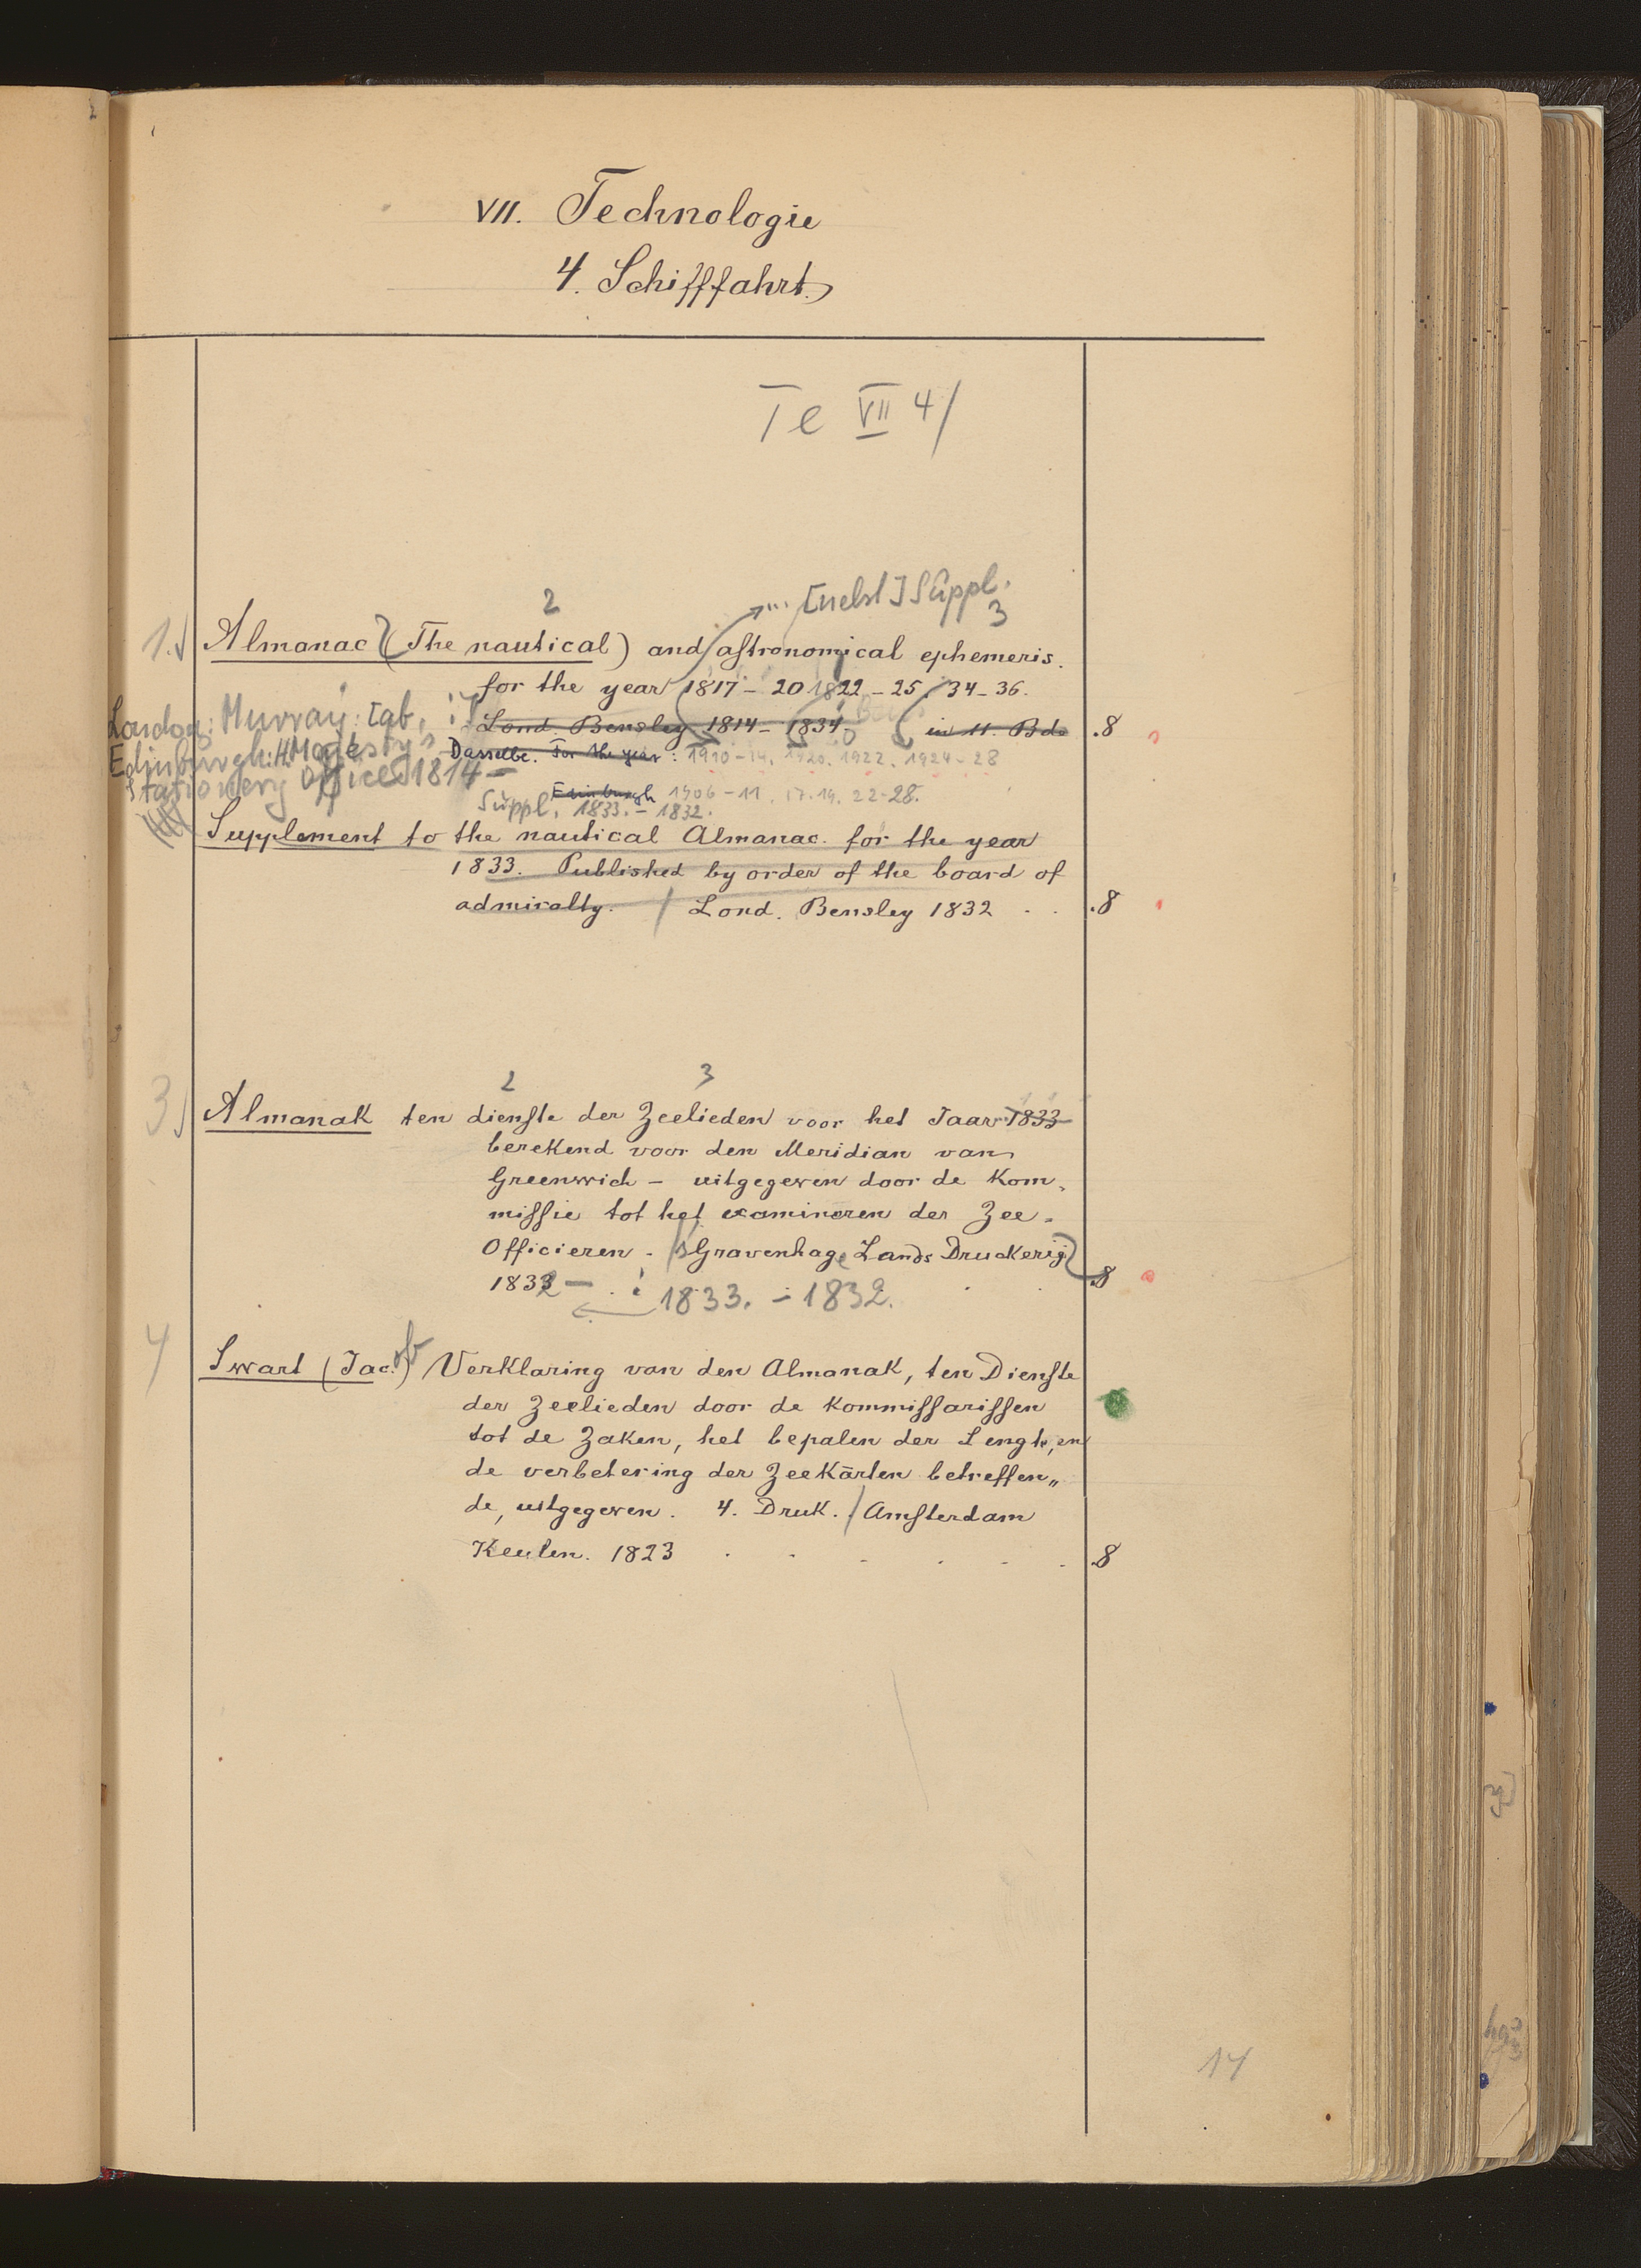 VII. Technologie
4. Schifffahrt.
Te VII 4/
[nebst] Suppl.
2
3
1.) Almanac (The nautical) and astronomical ephemeris.
for the year 1817 - 20 1822 - 25, 34 - 36.
Lond. Bensley 1814 - 1834, in 11. Bde .8
London: Murray: [ab,
Edinburgh: H. Majesty's
Stationery Office 1814 -
Dasselbe. For the year: 1910 - 14. 1920. 1922. 1924 - 28
Edinburgh 1906 - 11. 17. 19. 22 - 28.
Suppl. 1833. - 1832.
Supplement to the nautical Almanac. for the year
1833. Published by order of the board of
admiralty. / Lond. Bensley 1832 . . .8
2 3
3) Almanak ten dienste der Zeelieden voor het Jaar 1833
berekend voor den Meridian van
Greenwich - uitgegeven door de Kom-
missie tot het examineren der Zee-
Officieren - s'Gravenhage Lands Druckerij
1832 - : . . .8
1833. - 1832.
4 Swart (Jacob) Verklaring van den Almanak, ten Dienste
der Zeelieden door de Kommissarissen
tot de Zaken, het bepalen der Lengte, en
de verbetering der Zeekärten betreffen„
de, uitgegeven. 4. Druk. / Amsterdam
Keulen. 1823 . . . . . . .8
14